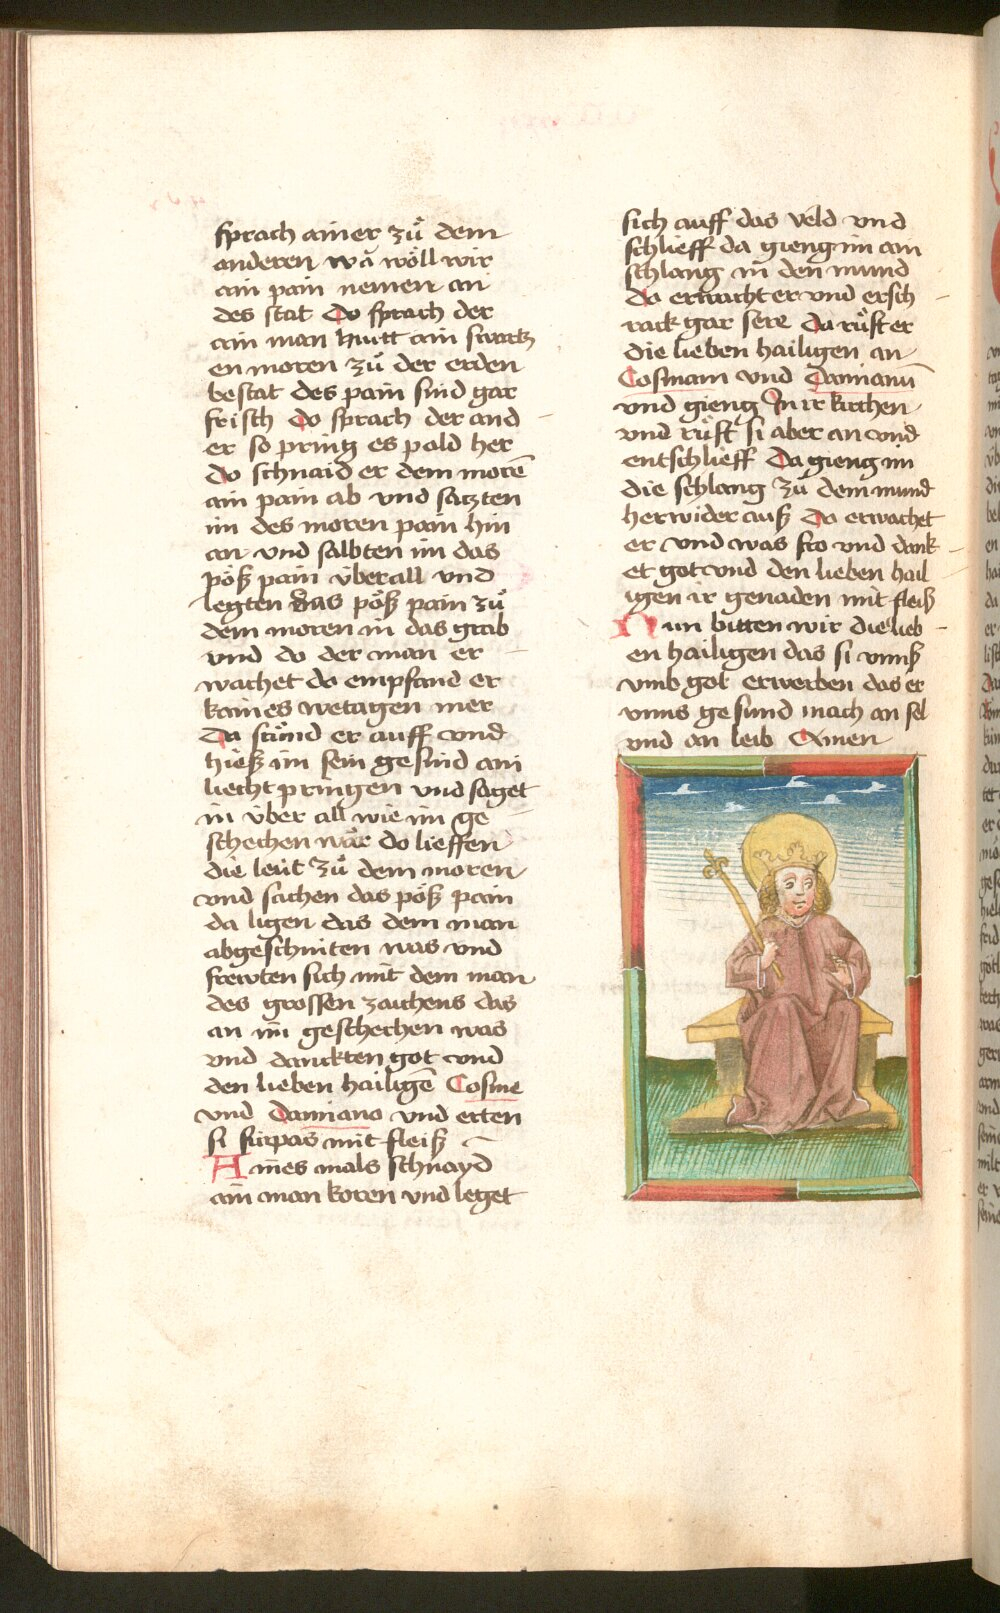 sprach ainer zuͤ dem
anderen wa wöll wir
ain pain nemen an
des stat Do sprach der
ain man hiutt ain swartz
en moren zuͤ der erden
bestat des pain sind gar
frisch Do sprach der and
er so pring es pald her
Do schnaid er dem morē
ain pain ab vnd satzten
im des moren pain hin
an vnd salbten im das
pöß pain überall vnd
legten das pöß pain zuͤ
dem moren in das grab
vnd do der man er
wachet do empfand er
kaines wetagen mer
Da stuͤnd er auff vnd
hieß im sein gesind ain
liecht pringen vnd saget
in über all wie im ge
schechen wär do lieffen
die leut zuͤ dem moren
vnd sachen das pöß pain
da ligen das dem man
abgeschniten was vnd
frewten sich mit dem man
des grossen zaichens das
an im geschechen was
vnd danckten got vnd
den lieben hailigē Cosme
vnd Damiano vnd erten
si fürpas mit fleiß
Aines mals schnayd
ain man koren vnd leget
sich auff das veld vnd
schlieff da gieng im ain
schlang in den mund
do erwacht er vnd ersch
rack gar sere Da ruͤft er
die lieben hailigen an
Cosmam vnd Damianū
vnd gieng In ir kirchen
vnd ruͤft si aber an vnd
entschlieff Da gieng im
die schlang zuͤ dem mund
herwider auß Do erwachet
er vnd was fro vnd dank
et got vnd den lieben hail
igen ir genaden mit fleiß
Nun bitten wir die lieb
en hailigen das si vnnß
vmb got erwerben das er
vnns gesund mach an sel
vnd an leib Amen